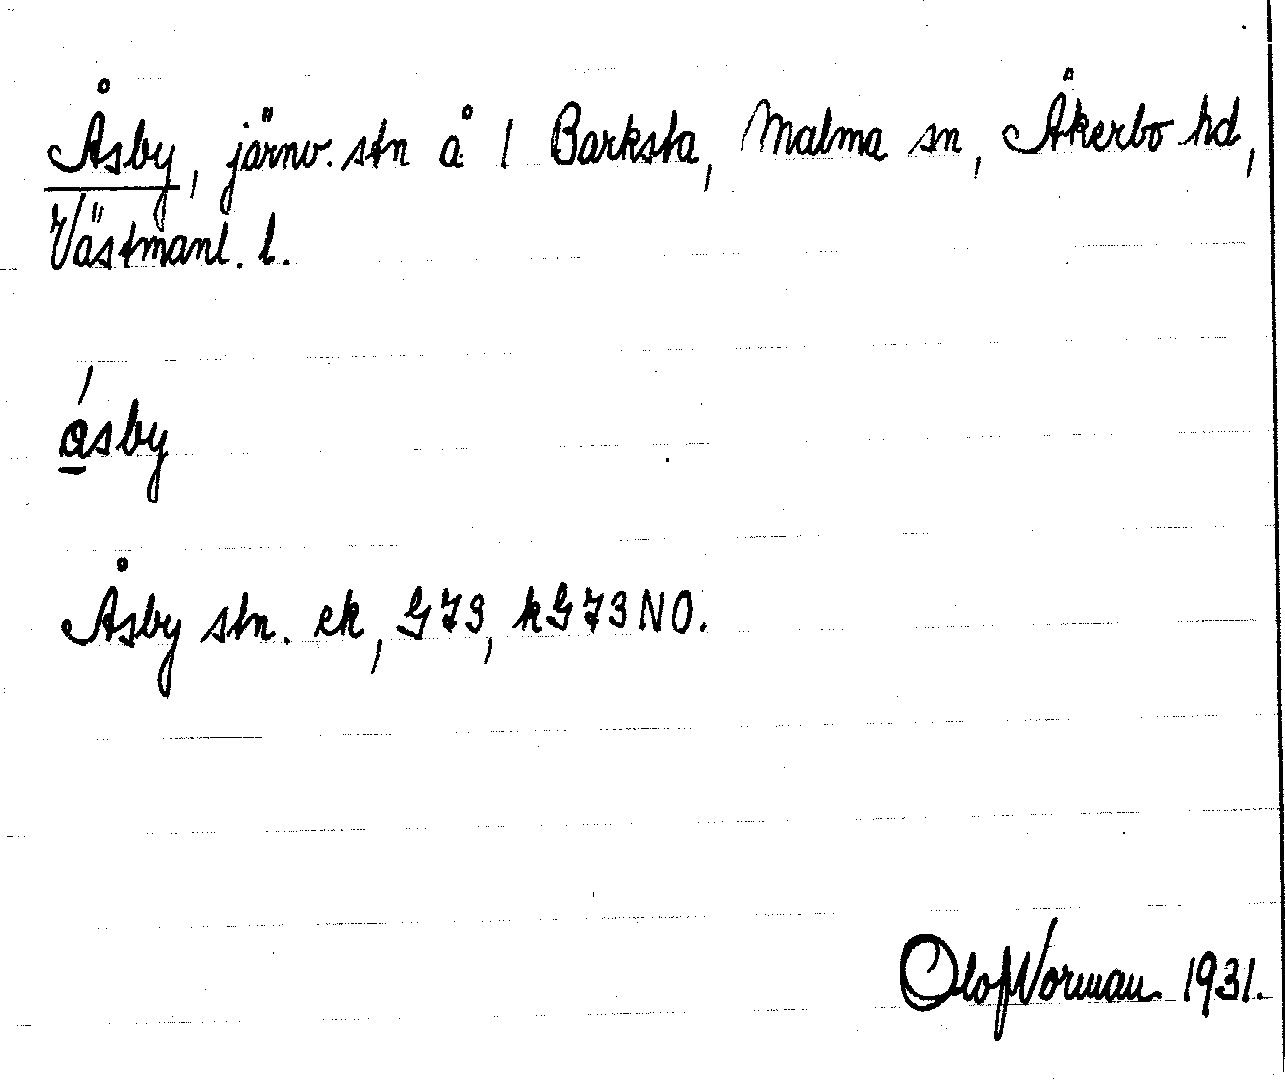 Åsby, järnv. stn å 1 Barksta, Malma sn, Åkerbo hd,
Västmanl. l.
ásby
Åsby stn. ek, G73, kG73NO.
Olof Norman 1931.